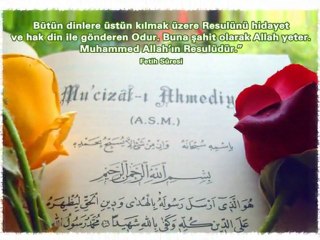 Bütün dinlere üstün kılmak üzere Resulünü hidayet
ve hak din ile gönderen Odur. Buna şahit olarak Allah yeter.
Muhammed Allah'ın Resulüdür."
Fetih Sûresi
Mu'cizât-ı Ahmediye
(A.S.M.)
بِاسْمِهِ سُبْحَانَهُ وَاِنْ مِنْ شَىْءٍ اِلاَّ يُسَبِّحُ بِحَمْدِهِ
بِسْمِ اللّٰهِ الرَّحْمٰنِ الرَّحِيمِ
هُوَ الَّذِى اَرْسَلَ رَسُولَهُ بِالْهُدٰى وَدِينِ الْحَقِّ لِيُظْهِرَهُ
عَلَى الدِّينِ كُلِّهِ وَكَفٰى بِاللّٰهِ شَهِيدًا مُحَمَّدٌ رَسُولُ اللّٰهِ